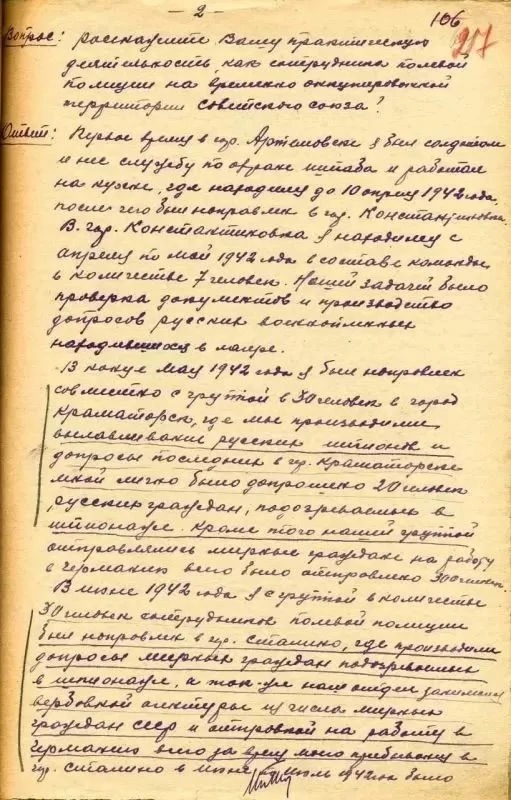 - 2 -
106
217
Вопрос: Расскажите Вашу практическую
деятельность, как сотрудника полевой
полиции на временно оккупированной
территории Советского союза?
Ответ: Первое время в гор. Артемовске я был солдатом
и нес службу по охране штаба и работал
на кухне, где находился до 10 апреля 1942 года,
после чего был направлен в гор. Константиновка.
В гор. Константиновка я находился с
апреля по май 1942 года в составе команды
в количестве 7 человек. Нашей задачей было
проверка документов и производство
допросов русских военнопленных
находившихся в лагере.
В конце мая 1942 года я был направлен
совместно с группой в 30 человек в город
Краматорск, где мы производили
вылавливание русских шпионов и
допросы последних в гр. Краматорске
мной лично было допрошено 20 человек
русских граждан, подозреваемых в
шпионаже. Кроме того нашей группой
отправлялись мирные граждане на работу
в Германию всего было отправлено 300 человек.
В июне 1942 года я с группой в количестве
30 человек сотрудников полевой полиции
был направлен в гр. Сталино, где производили
допросы мирных граждан подозреваемых
в шпионаже, а так-же наш отдел занимался
вербовкой агентуры из числа мирных
граждан СССР и отправкой на работу в
Германию всего за время моего пребывания в
гор. Сталино в июне июль 1942 года было